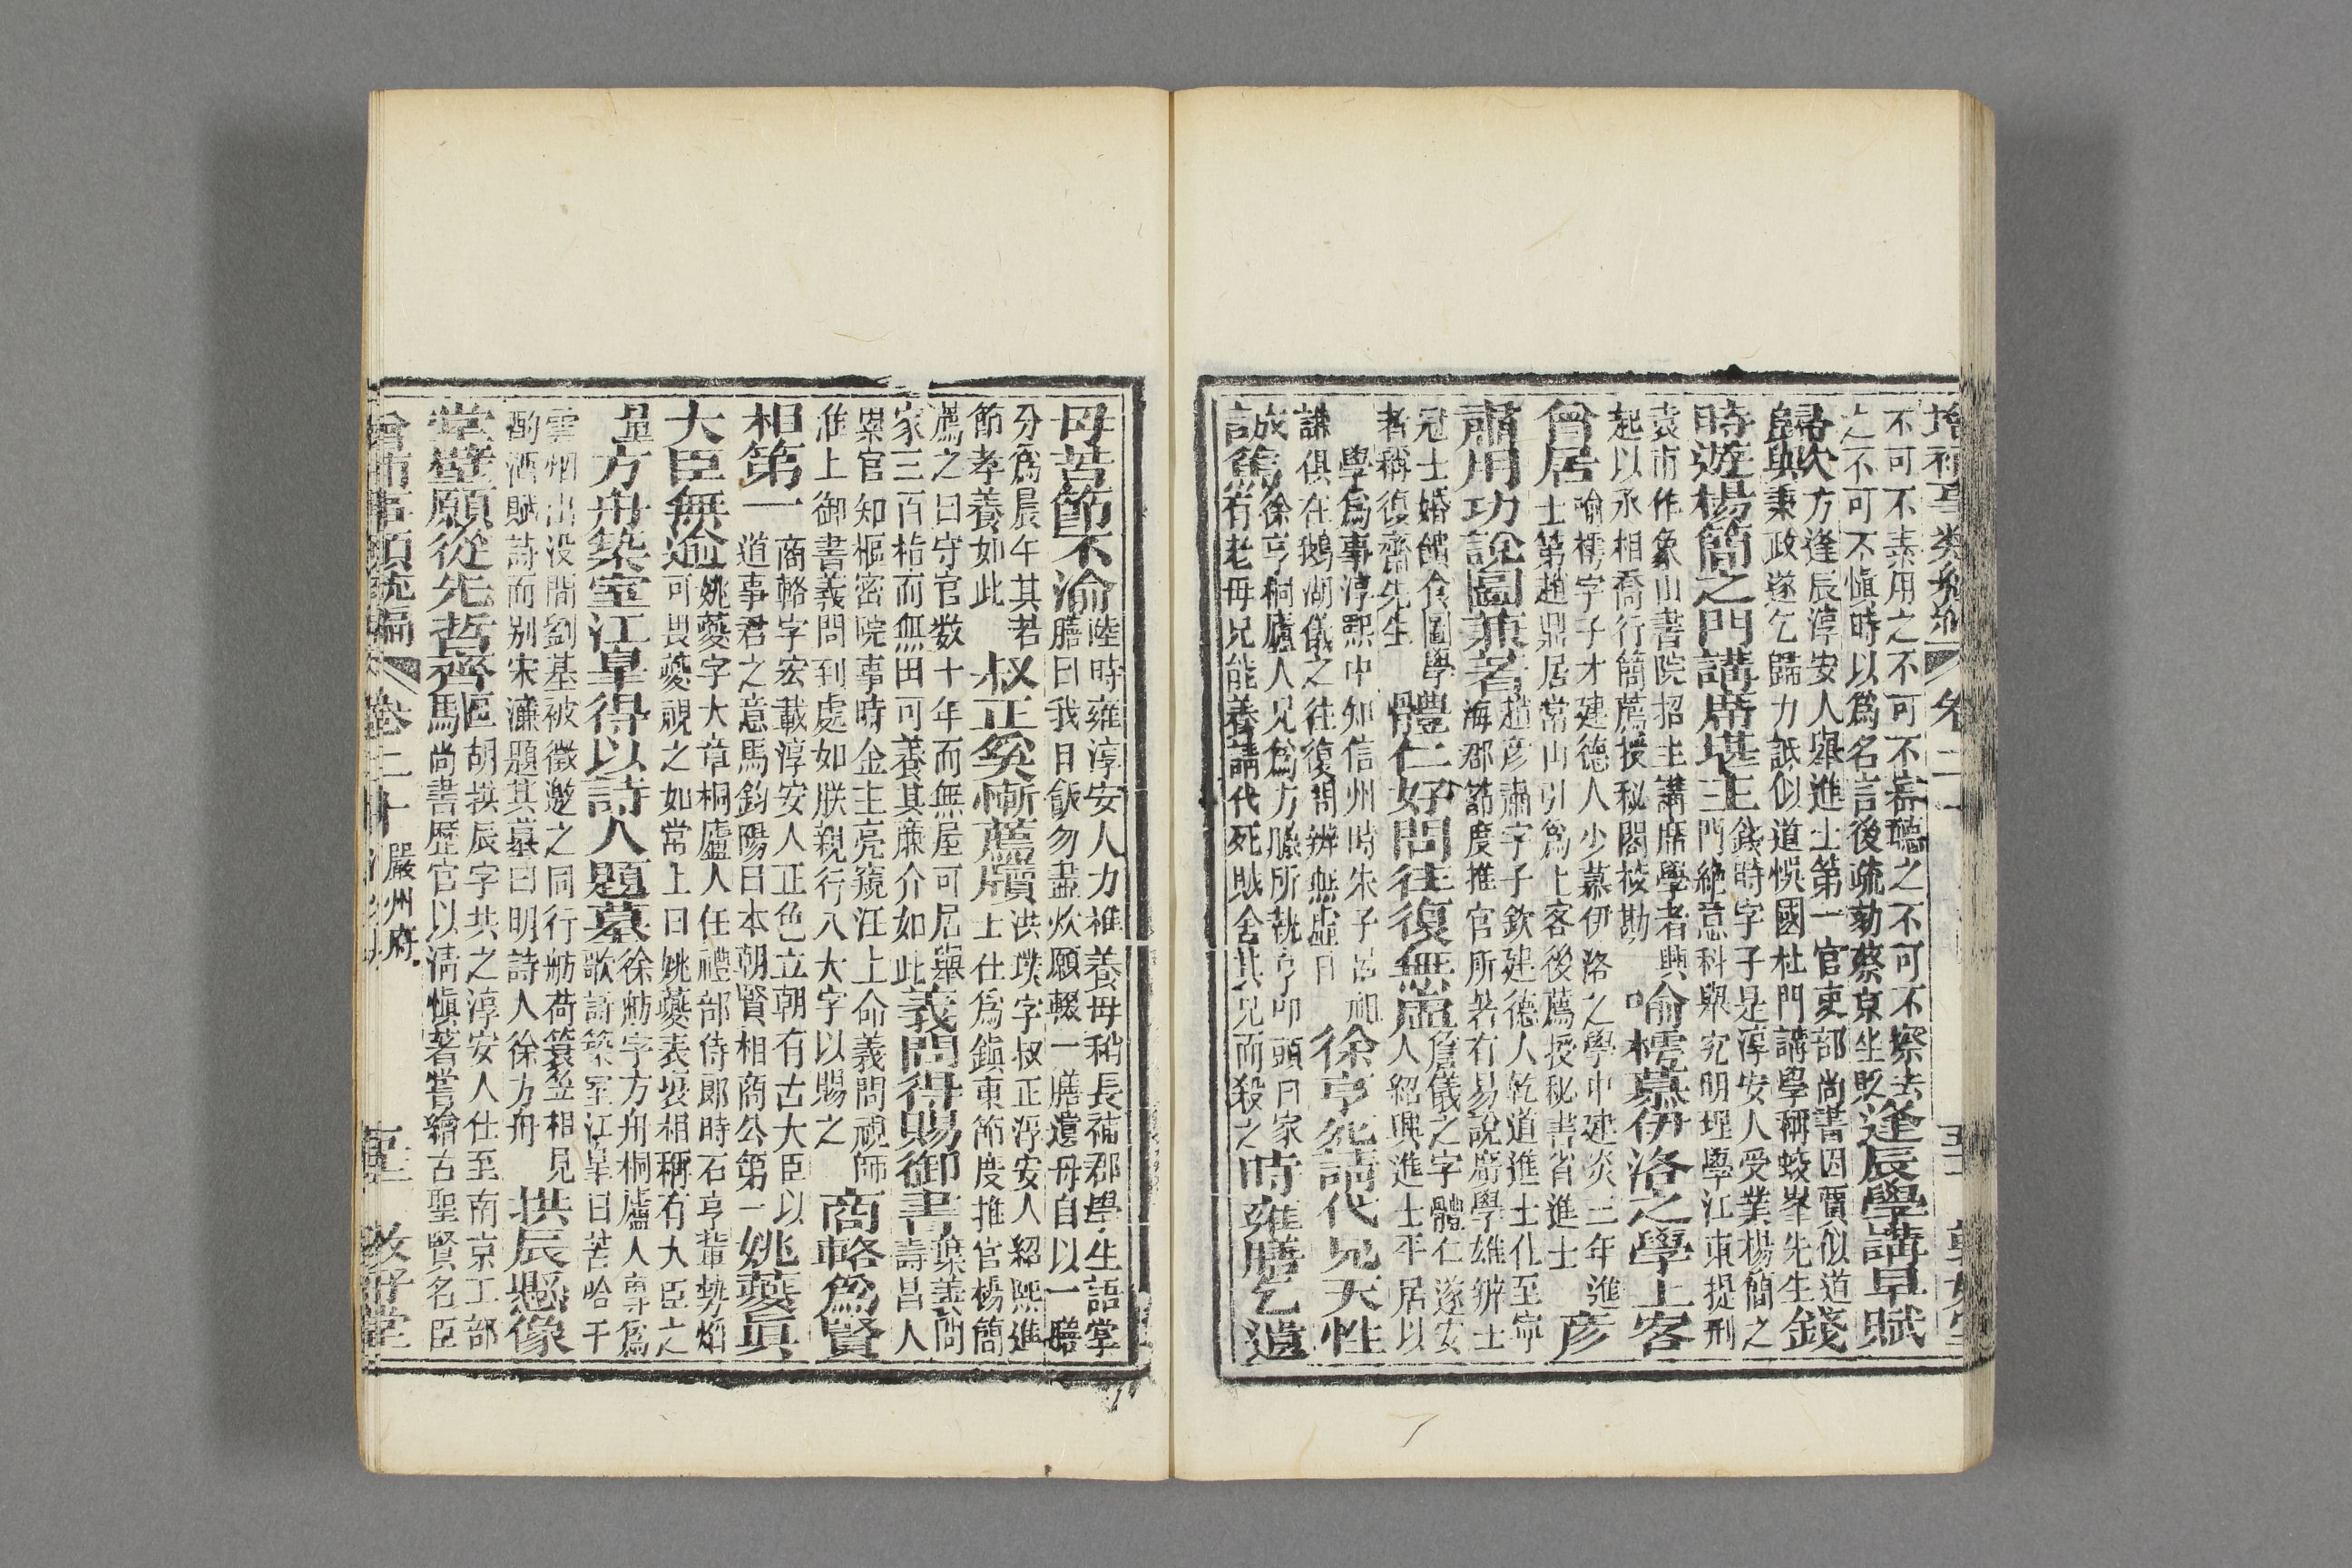 不可不素用之不可不審聽之不可不察去
之不可不愼時以爲名言後疏劾蔡京坐貶
逢辰學講早賦
歸歟
方逢辰淳安人舉進士第一官吏部尚書因賈似道
秉政遂乞歸力詆似道悞國杜門講學稱蛟峯先生
錢
時遊楊簡之門講席堪主
錢時字子是淳安人受業楊簡之
門絶意科舉究明理學江東提刑
袁甫作象山書院招主講席學者興
起以永相喬行簡薦授秘閣校勘
喻樗慕伊洛之學上客
曾居
喻樗字子才建德人少慕伊洛之學中建炎三年進
士第趙鼎居常山引爲上客後薦授秘書省進士
彦
肅用功說圖兼著
趙彦肅字子欽建德人乾道進士仕至寧
海郡節度推官所著有易說廣學雄辨士
冠士婚饋食圖學
者稱復齋先生
體仁好問往復無虛
詹儀之字體仁遂安
人紹興進士平居以
學爲事淳熙中知信州時朱子呂祖
謙俱在鵝湖儀之往復問辨無虛日
徐亨死請代兄天性
誠篤
徐亨桐廬人兄爲方臘所執亨叩頭曰家
有老母兄能養請代死賊舍其兄而殺之
時雍膳乞遺
母苦節不渝
陸時雍淳安人力雅養母稍長補郡學生語掌
膳曰我日飯勿盡炊願輟一膳遺母自以一膳
分爲晨午其苦
節孝養如此
叔正矣慚薦牘
洪璞字叔正淳安人紹熙進
士仕爲鎭東節度推官楊簡
薦之曰守官数十年而無屋可居舉
家三百指而無田可養其廉介如此
義問得賜御書
葉義問
壽昌人
累官知樞密院事時金主亮窺江上命義問視師
淮上御書義問到處如朕親行八大字以賜之
商輅爲賢
相第一
商輅字宏載淳安人正色立朝有古大臣以
道事君之意馬鈞陽曰本朝賢相商公第一
姚夔眞
大臣無逾
姚夔字大章桐廬人任禮部侍郎時石亨輩勢焰
可畏夔視之如常上曰姚夔表裏相稱有大臣之
量
方舟築室江皐得以詩人題墓
徐舫字方舟桐廬人專爲
歌詩築室江皐日苦哈于
雲烟出没間劉基被徵邀之同行舫荷簑笠相見
酌酒賦詩而别宋濂題其墓曰明詩人徐方舟
拱辰懸像
堂壁願從先哲齊驅
胡拱辰字共之淳安人仕至南京工部
尚書歷官以清愼著嘗繪古聖賢名臣
增補事類統編 卷二十 嚴州府